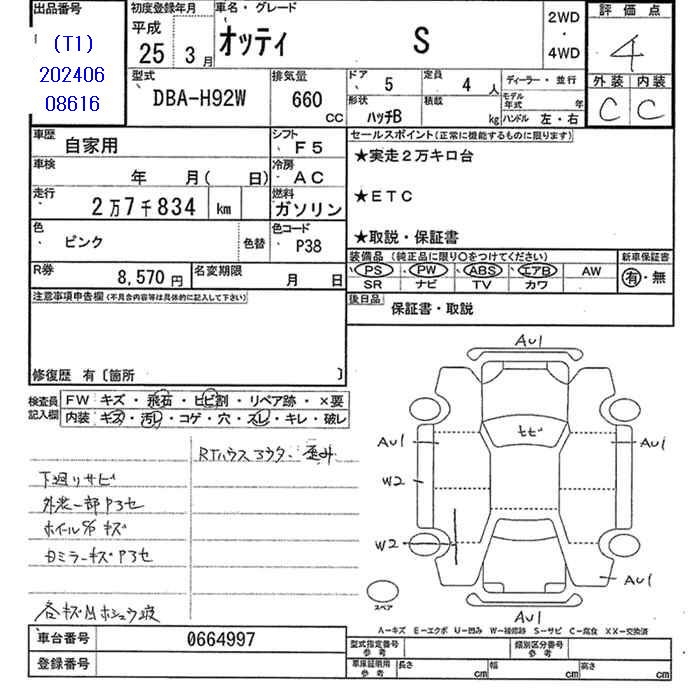 出品番号
(T1)
202406
08616
初度登録年月
平成
25年 3月
車名・グレード
オッティ S
2WD
・
4WD
評価点
4
外装 内装
C C
型式
DBA-H92W
排気量
660 CC
ドア 5
定員 4人
形状 ハッチB
積載 kg
ディーラー・並行
モデル年式 年
ハンドル 左・右
車歴 自家用
シフト F5
車検 年 月( 日)
冷房 AC
走行 2万7千834 km
燃料 ガソリン
色 ピンク 色替
色コード P38
R券 8,570円
名変期限 月 日
セールスポイント(正常に機能するものに限ります)
★実走2万キロ台
★ETC
★取説・保証書
装備品(純正品に限り○をつけてください)
PS PW ABS エアB AW
SR ナビ TV カワ
新車保証書
有・無
後日品 保証書・取説
注意事項申告欄(不具合内容等は具体的に記入して下さい)
修復歴 有〔箇所 〕
検査員記入欄
FW キズ・飛石・ヒビ割・リペア跡・×要
内装 キズ・汚レ・コゲ・穴・スレ・キレ・破レ
RTハウスアウター歪み
下廻りサビ
外装一部P3セ
ホイールS/Oキズ
ロミラーキズP3セ
各キズ凹ホシュウ跡
AU1
ヒビ
AU1 AU1
W2
W2
AU1
AU1
スペア
A-キズ E-エクボ U-凹み W-補修跡 S-サビ C-腐食 XX-交換済
車台番号 0664997
登録番号
型式指定番号 参考
類別区分番号 参考
車庫証明用 参考
長さ cm
幅 cm
高さ cm